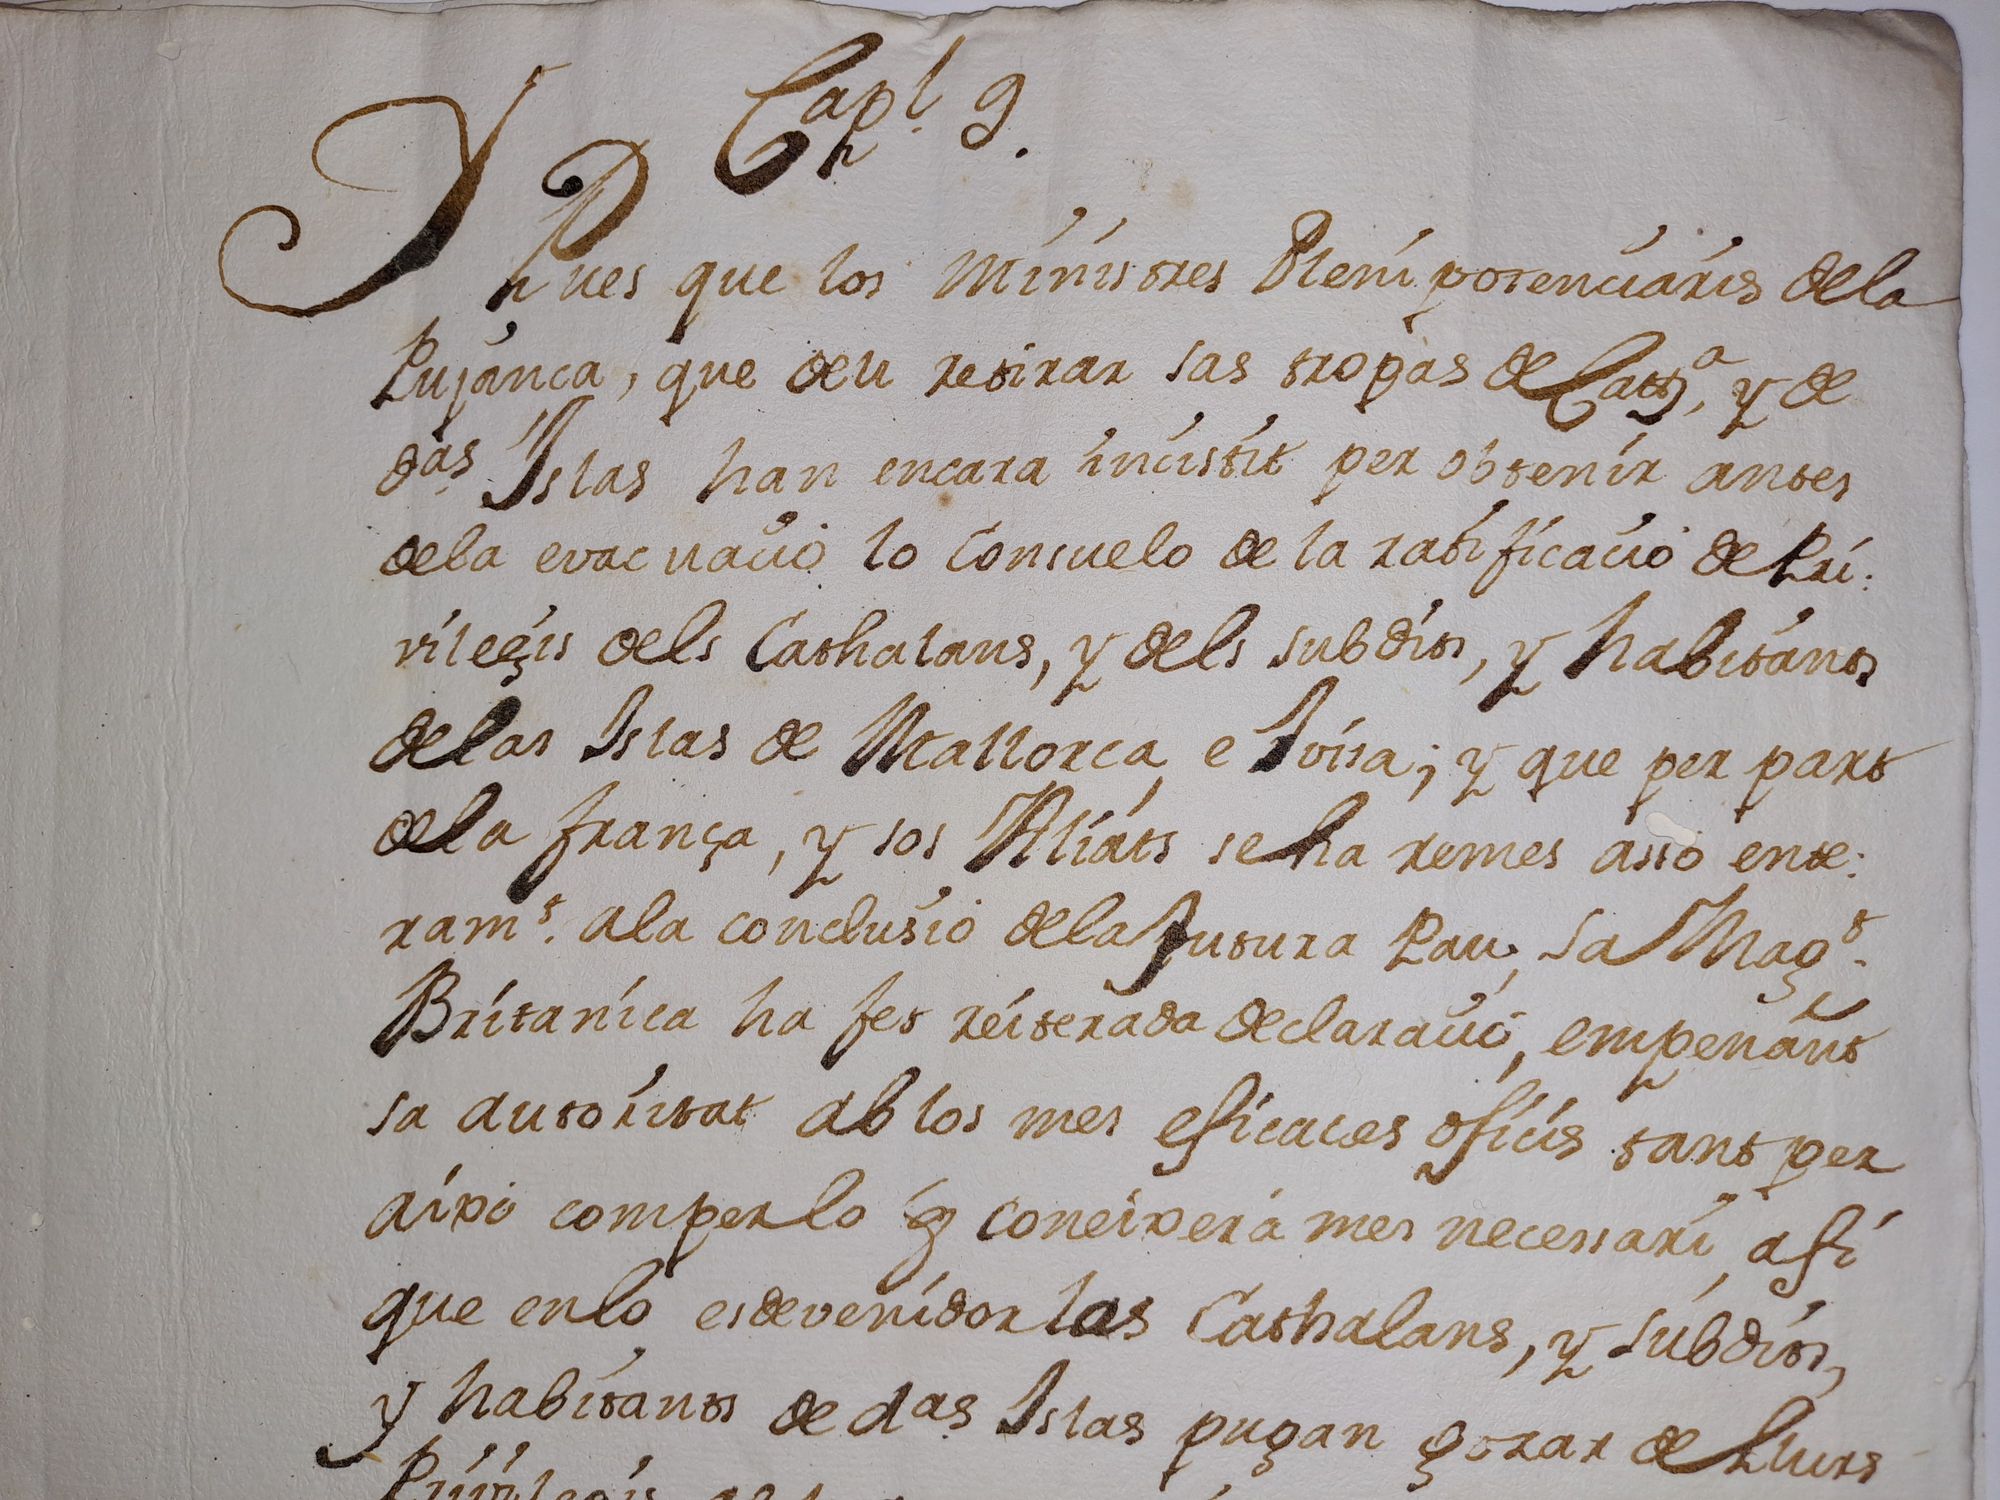 Capl. 9.
Y Pues que los Ministres Plenipotenciaris dela
Pujança, que deu retirar sas tropas de Catha., y de
das. Islas han encara incistit per obtenir antes
dela evacuació lo Consuelo de la ratificació de Pri:
vilegis dels Cathalans, y dels subdits, y habitants
delas Islas de Mallorca, e Ivissa; y que per part
dela frança, y sos Aliats se ha remes asso ente:
ramt. ala conclusió dela futura Pau, sa Magt.
Britanica ha fet reiterada declaració, empeñant
sa autoritat ab los mes eficaces oficis tant per
aixó com per lo q coneixerá mes necessari, a fi
que en lo esdevenidor las Cathalans, y subdits,
y habitants de das Islas pugan gozar de llurs
Privilegis